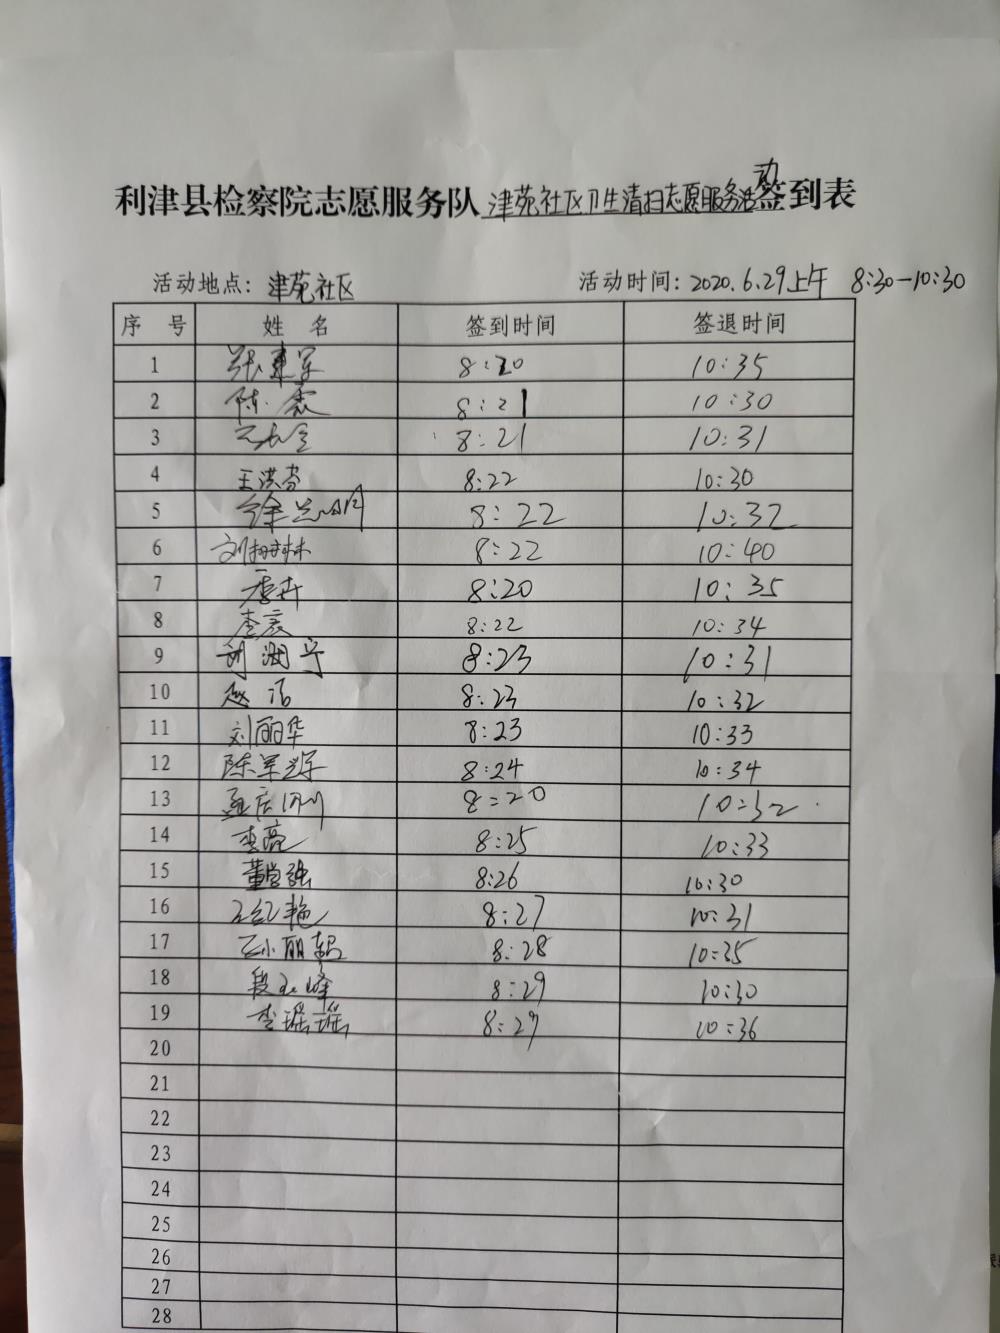 利津县检察院志愿服务队津苑社区卫生清扫志愿服务活动签到表
活动地点：津苑社区 活动时间：2020.6.29上午 8:30-10:30
序 号 姓 名 签到时间 签退时间
1 张建军 8:20 10:35
2 陈震 8:21 10:30
3 8:21 10:31
4 王洪芬 8:22 10:30
5 徐兰明 8:22 10:32
6 刘树林 8:22 10:40
7 8:20 10:35
8 李宸 8:22 10:34
9 8:23 10:31
10 赵洁 8:23 10:32
11 刘丽华 8:23 10:33
12 陈军辉 8:24 10:34
13 孟庆刚 8:20 10:32
14 李亮 8:25 10:33
15 董学强 8:26 10:30
16 王红艳 8:27 10:31
17 8:28 10:35
18 段玉峰 8:29 10:30
19 李瑶瑶 8:29 10:36
20
21
22
23
24
25
26
27
28